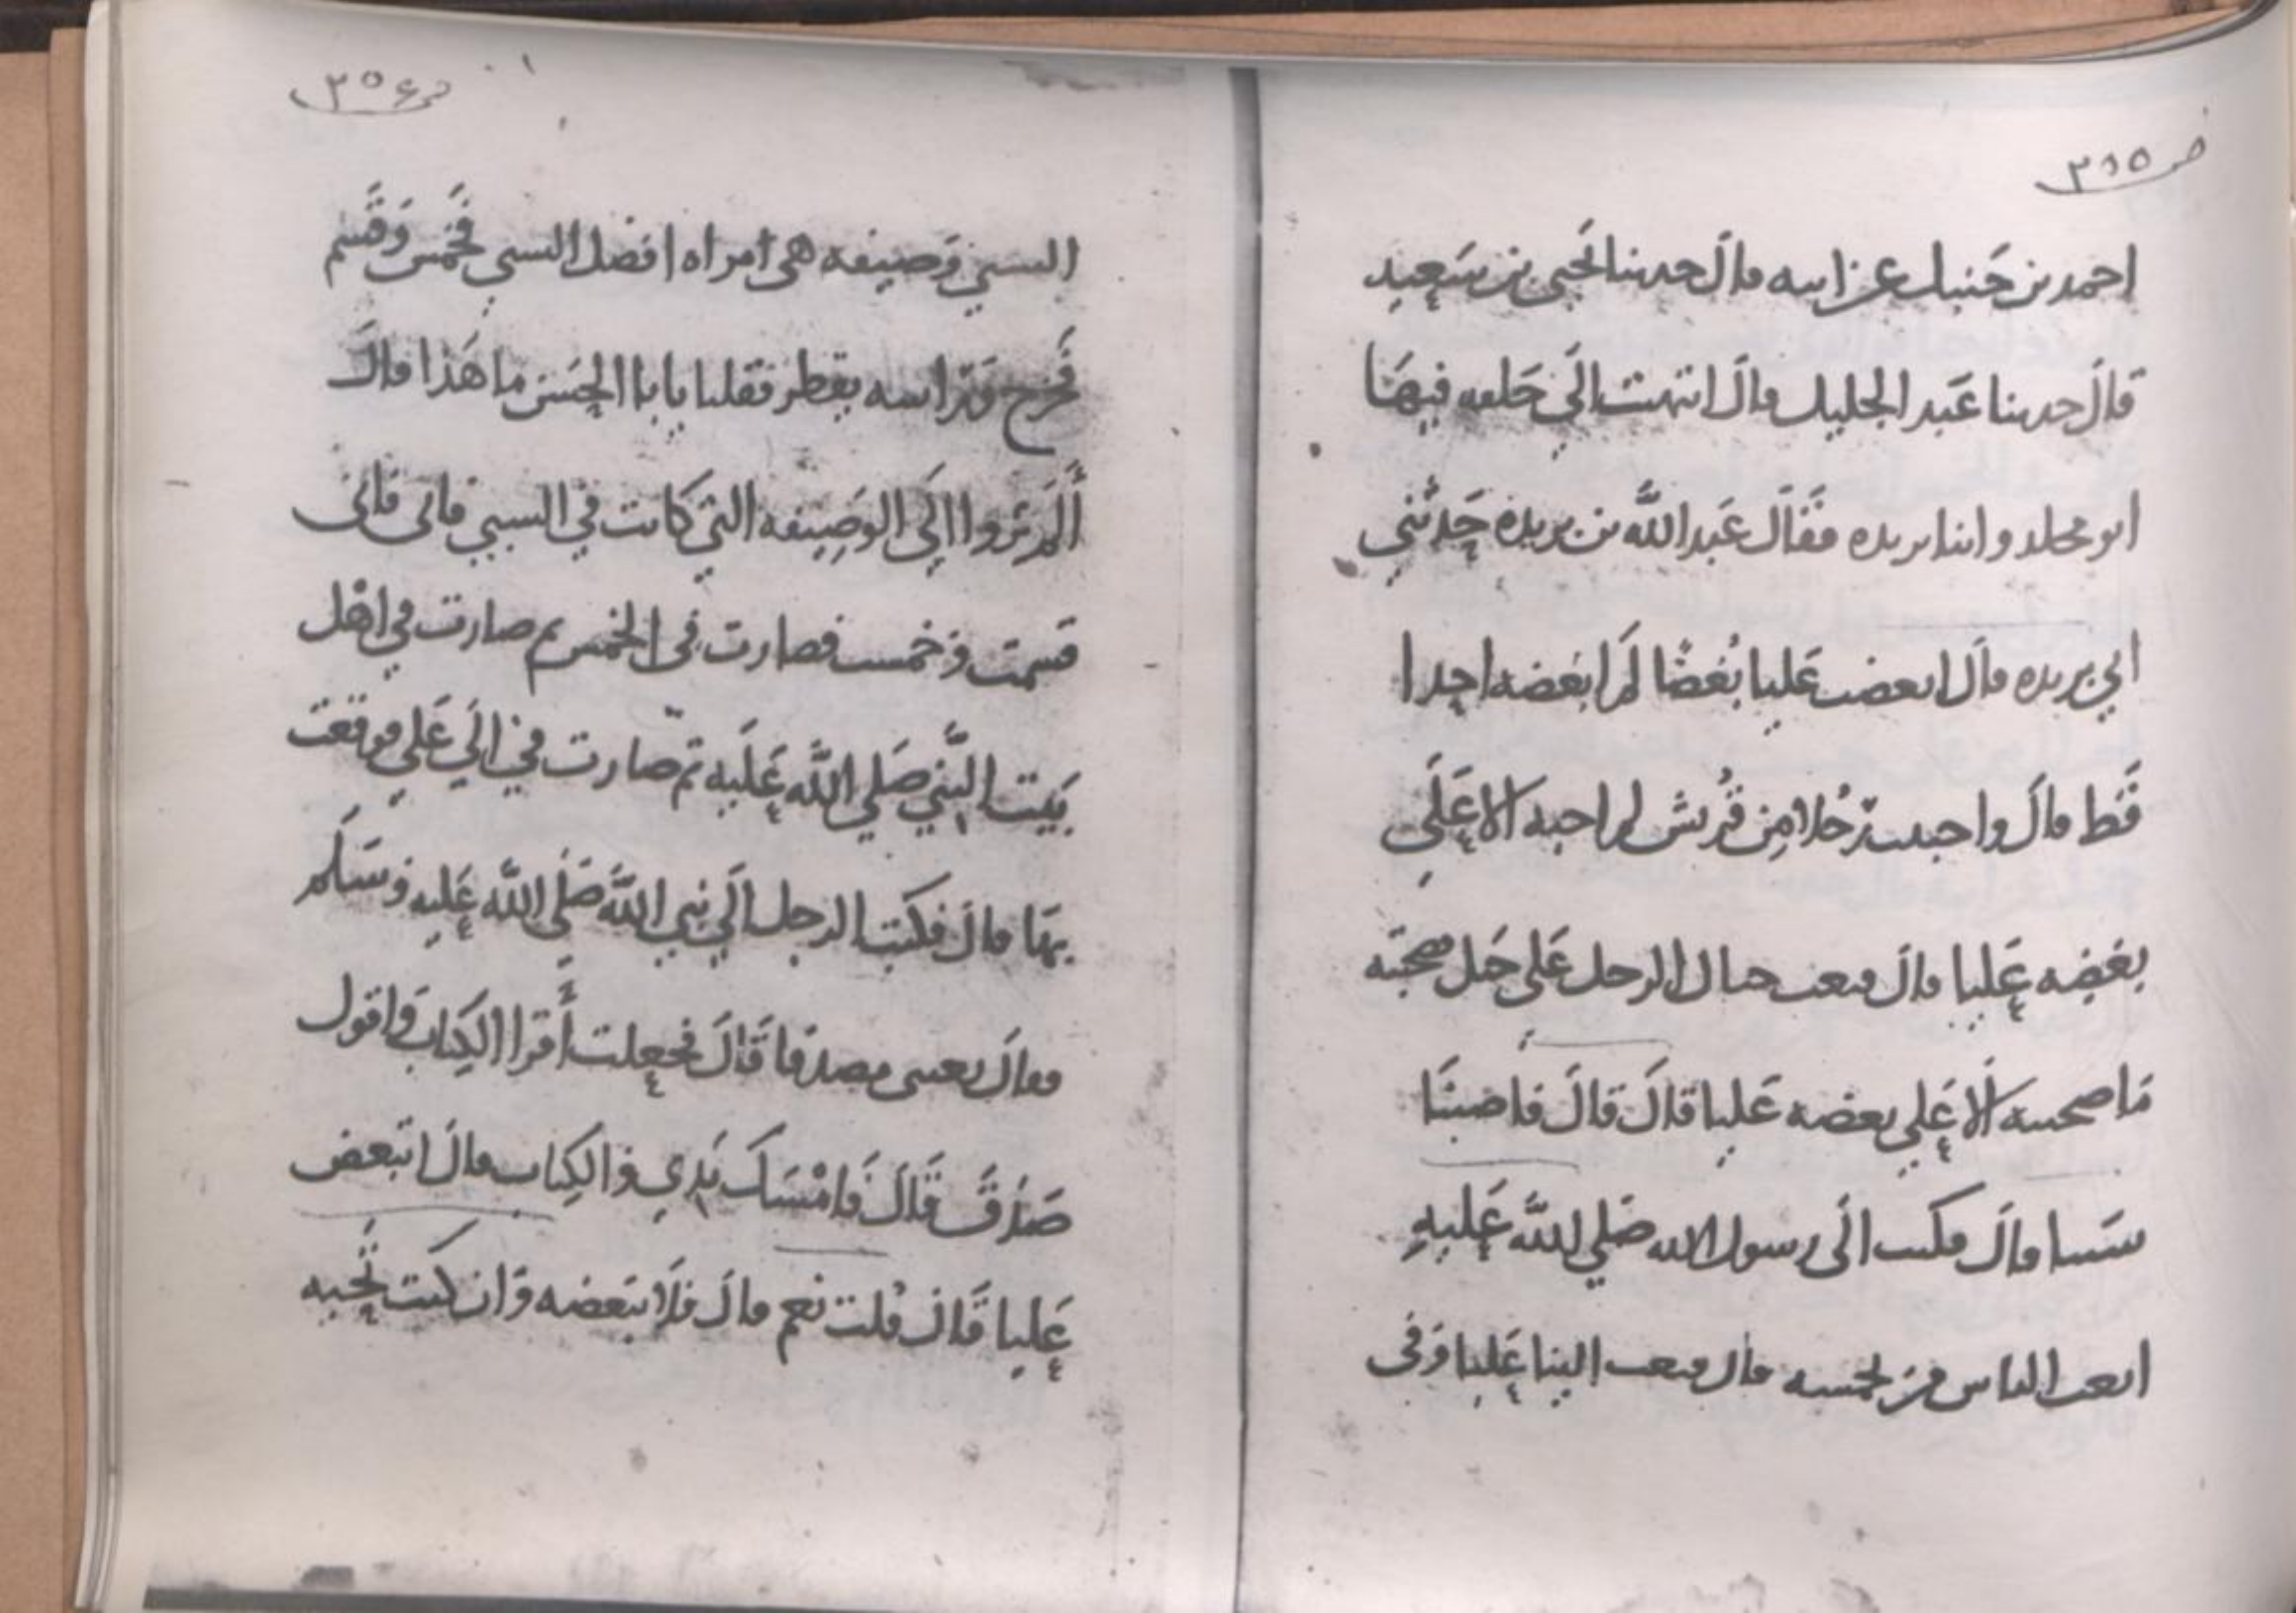 ص ٣٥٥
احمد بن حَنبل عن ابيه قالَ حدثنا يَحيى بن سَعِيد
قالَ حدثنا عَبد الجليل قالَ انتهيت الَى حَلقه فيهَا
ابو مجلد وابنا بريده فَقَالَ عَبد اللَّه بن بريده حَدثني
ابي بريده قالَ ابغضت عَليا بُغضًا لَم ابغضه احدا
قَط قالَ واحببت رَجُلا مِن قُريش لم احبه الا عَلَى
بغضِه عَليا قالَ فبعث ذاك الرجل عَلى خَيل صحبته
مَا صحبته الا عَلى بغضه عَليا قالَ قالَ فاصبنَا
سَبيا قالَ فكتب الَى رسول الله صَلي اللَّه عَليهِ
ابعث الناس من يخمسه قال فبعث الينا عَليا وَفى
ص ٣٥٦
السبي وَصيفه هى امراه افضل السبي فَخمس وَقَسم
فَخرج وَرَاسه يقطر فقلنا يابا الحَسن ما هَذا قالَ
أَلَم تروا الَى الوصِيفه التي كانت في السبي فانى
قسمت وخمست فصارت في الخمس ثم صارت في اهْل
بَيت النَّبي صَلي اللَّه عَلَيه ثم صارت في الَي عَلي فوقعت
بهَا قالَ فكتب الرجل الَي نبي اللَّه صَلَي اللَّه عَليهِ وسَلم
فقالَ بعثنى مصدقا قَالَ فجعلت أَقرا الكِتاب وَاقول
صَدَقَ قَالَ فَامْسَكَ يَدي والكِتاب قالَ اتبغض
عَليا قَالَ قُلت نعم قالَ فَلَا تبَغضه وَان كنت تُحبه